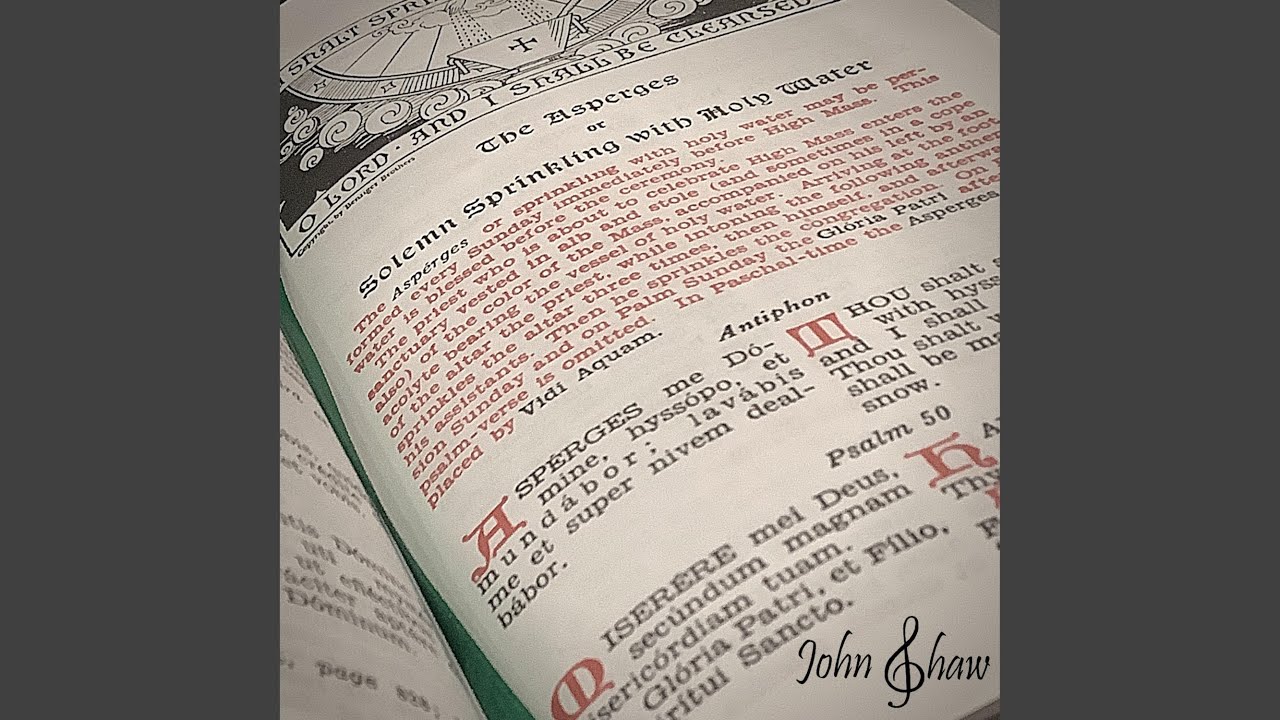 SHALT SPRI
O LORD · AND I SHALL BE CLEANSED
Copyright, by Benziger Brothers
The Asperges
or
Solemn Sprinkling with Holy Water
The Aspérges or sprinkling with holy water may be per-
formed every Sunday immediately before High Mass. This
water is blessed before the ceremony.
The priest who is about to celebrate High Mass enters the
sanctuary vested in alb and stole (and sometimes in a cope
also) of the color of the Mass, accompanied on his left by an
acolyte bearing the vessel of holy water. Arriving at the foot
of the altar the priest, while intoning the following anthem
sprinkles the altar three times, then himself, and afterw
his assistants. Then he sprinkles the congregation. On
sion Sunday and on Palm Sunday the Glória Patri
psalm-verse is omitted. In Paschal-time the Asperges
placed by Vidi Aquam.
Antiphon
ASPÉRGES me Dó-
mine, hyssópo, et
mundábor; lavábis
me et super nivem deal-
bábor.
THOU shalt s
with hyss
and I shall
Thou shalt
shall be ma
snow.
Psalm 50
MISERERE mei Deus,
secúndum magnam
isericórdiam tuam.
Glória Patri, et Fílio,
ritui Sancto.
H
Thy
page
John Shaw